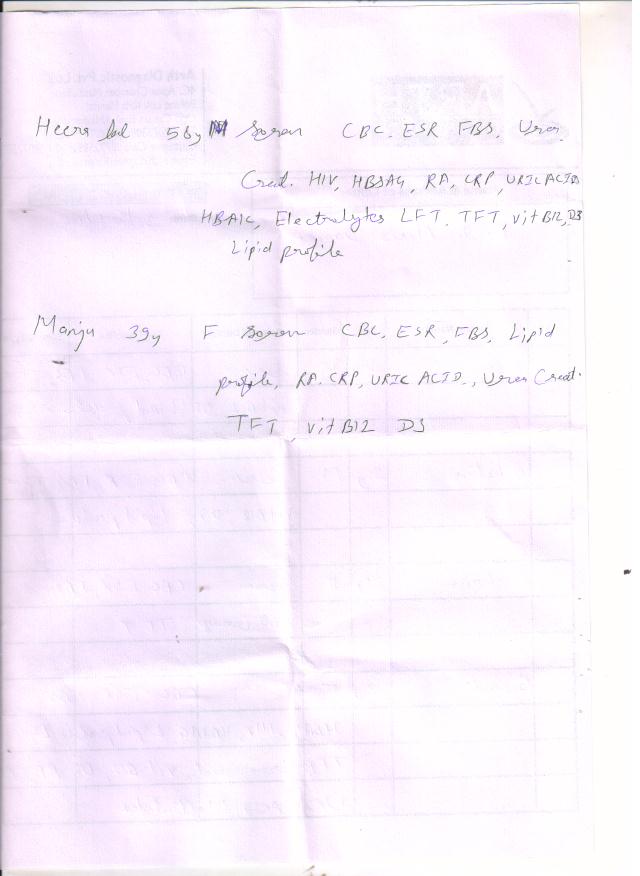 Heera lal 56y M Soron CBC. ESR FBS, Urea
Creat. HIV, HBSAG, RA, CRP, URIC ACID
HBA1C, Electrolytes LFT. TFT, vit B12, D3
Lipid profile
Manju 39y F Soron CBC, ESR, FBS, Lipid
profile, RA. CRP, URIC ACID., Urea Creat.
TFT vit B12 D3